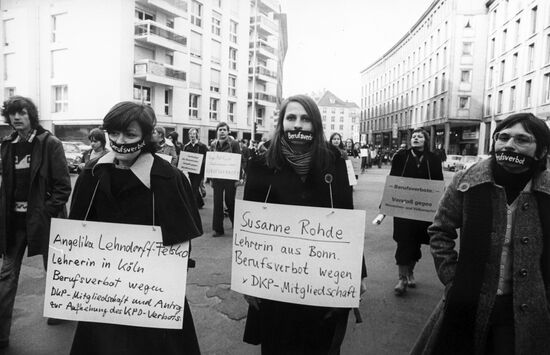 Angelika Lehndorff-Felsko
Lehrerin in Köln
Berufsverbot wegen
DKP-Mitgliedschaft und Antrag
zur Aufhebung des KPD-Verbots.
Berufsverbot
Susanne Rohde
Lehrerin aus Bonn.
Berufsverbot wegen
DKP-Mitgliedschaft
Berufsverbot
Berufsverbot
Verstoß gegen
Berufsverbot